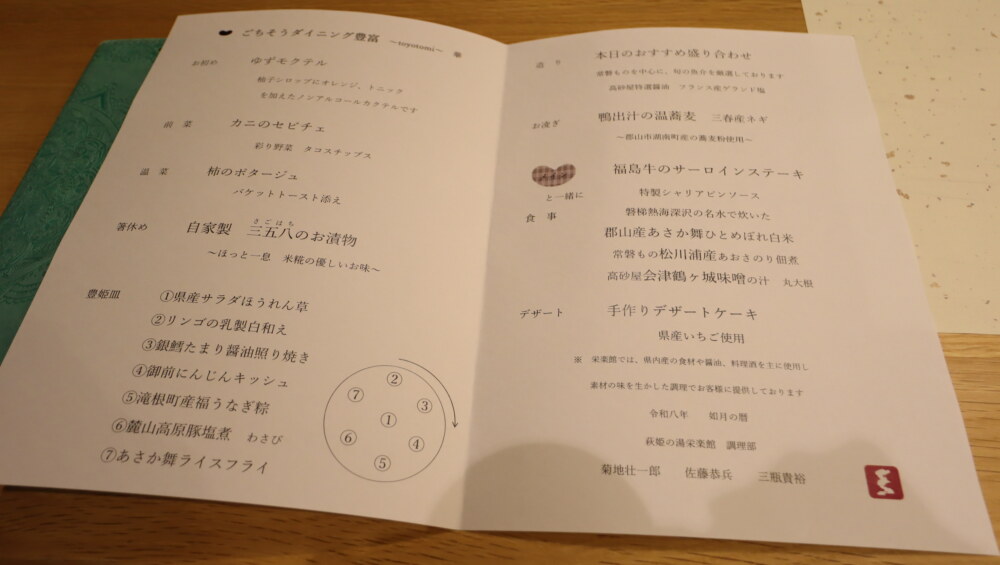 ごちそうダイニング豊富 ~toyotomi~
お初め ゆずモクテル
柚子シロップにオレンジ、トニック
を加えたノンアルコールカクテルです
前菜 カニのセビチェ
彩り野菜 タコスチップス
温菜 柿のポタージュ
バケットトースト添え
さごはち
箸休め 自家製 三五八のお漬物
~ほっと一息 米糀の優しいお味~
豊姫皿 ①県産サラダほうれん草
②リンゴの乳製白和え
③銀鱈たまり醤油照り焼き
④御前にんじんキッシュ
⑤滝根町産福うなぎ粽
⑥麓山高原豚塩煮 わさび
⑦あさか舞ライスフライ
②
⑦ ③
①
⑥ ④
⑤
造り 本日のおすすめ盛り合わせ
常磐ものを中心に、旬の魚介を厳選しております
高砂屋特選醤油 フランス産ゲランド塩
お凌ぎ 鴨出汁の温蕎麦 三春産ネギ
~郡山市湖南町産の蕎麦粉使用~
福島牛のサーロインステーキ
と一緒に 特製シャリアピンソース
食事 磐梯熱海深沢の名水で炊いた
郡山産あさか舞ひとめぼれ白米
常磐もの松川浦産あおさのり佃煮
高砂屋会津鶴ヶ城味噌の汁 丸大根
デザート 手作りデザートケーキ
県産いちご使用
※ 栄楽館では、県内産の食材や醤油、料理酒を主に使用し
素材の味を生かした調理でお客様に提供しております
令和八年 如月の暦
萩姫の湯栄楽館 調理部
菊地壮一郎 佐藤恭兵 三瓶貴裕